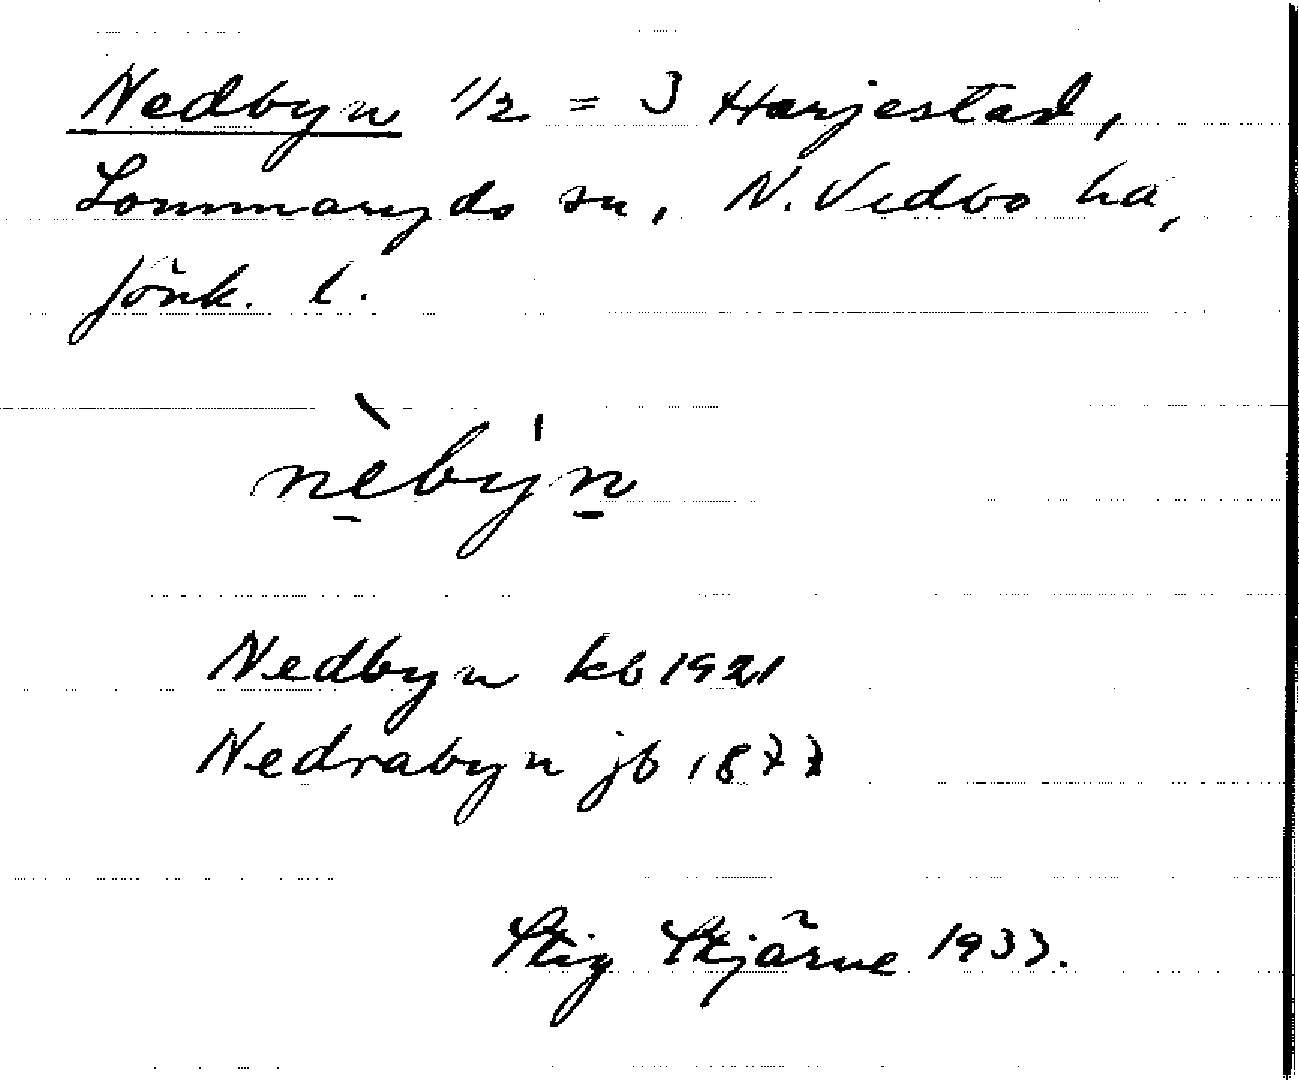 Nedbyn 1/2 = 3 Harjestad,
Lommaryds sn, N. Vedbo hd,
Jönk. l.
nèbẏn
Nedbyn kb 1921
Nedrabyn jb 1877
Stig Stjärne 1933.